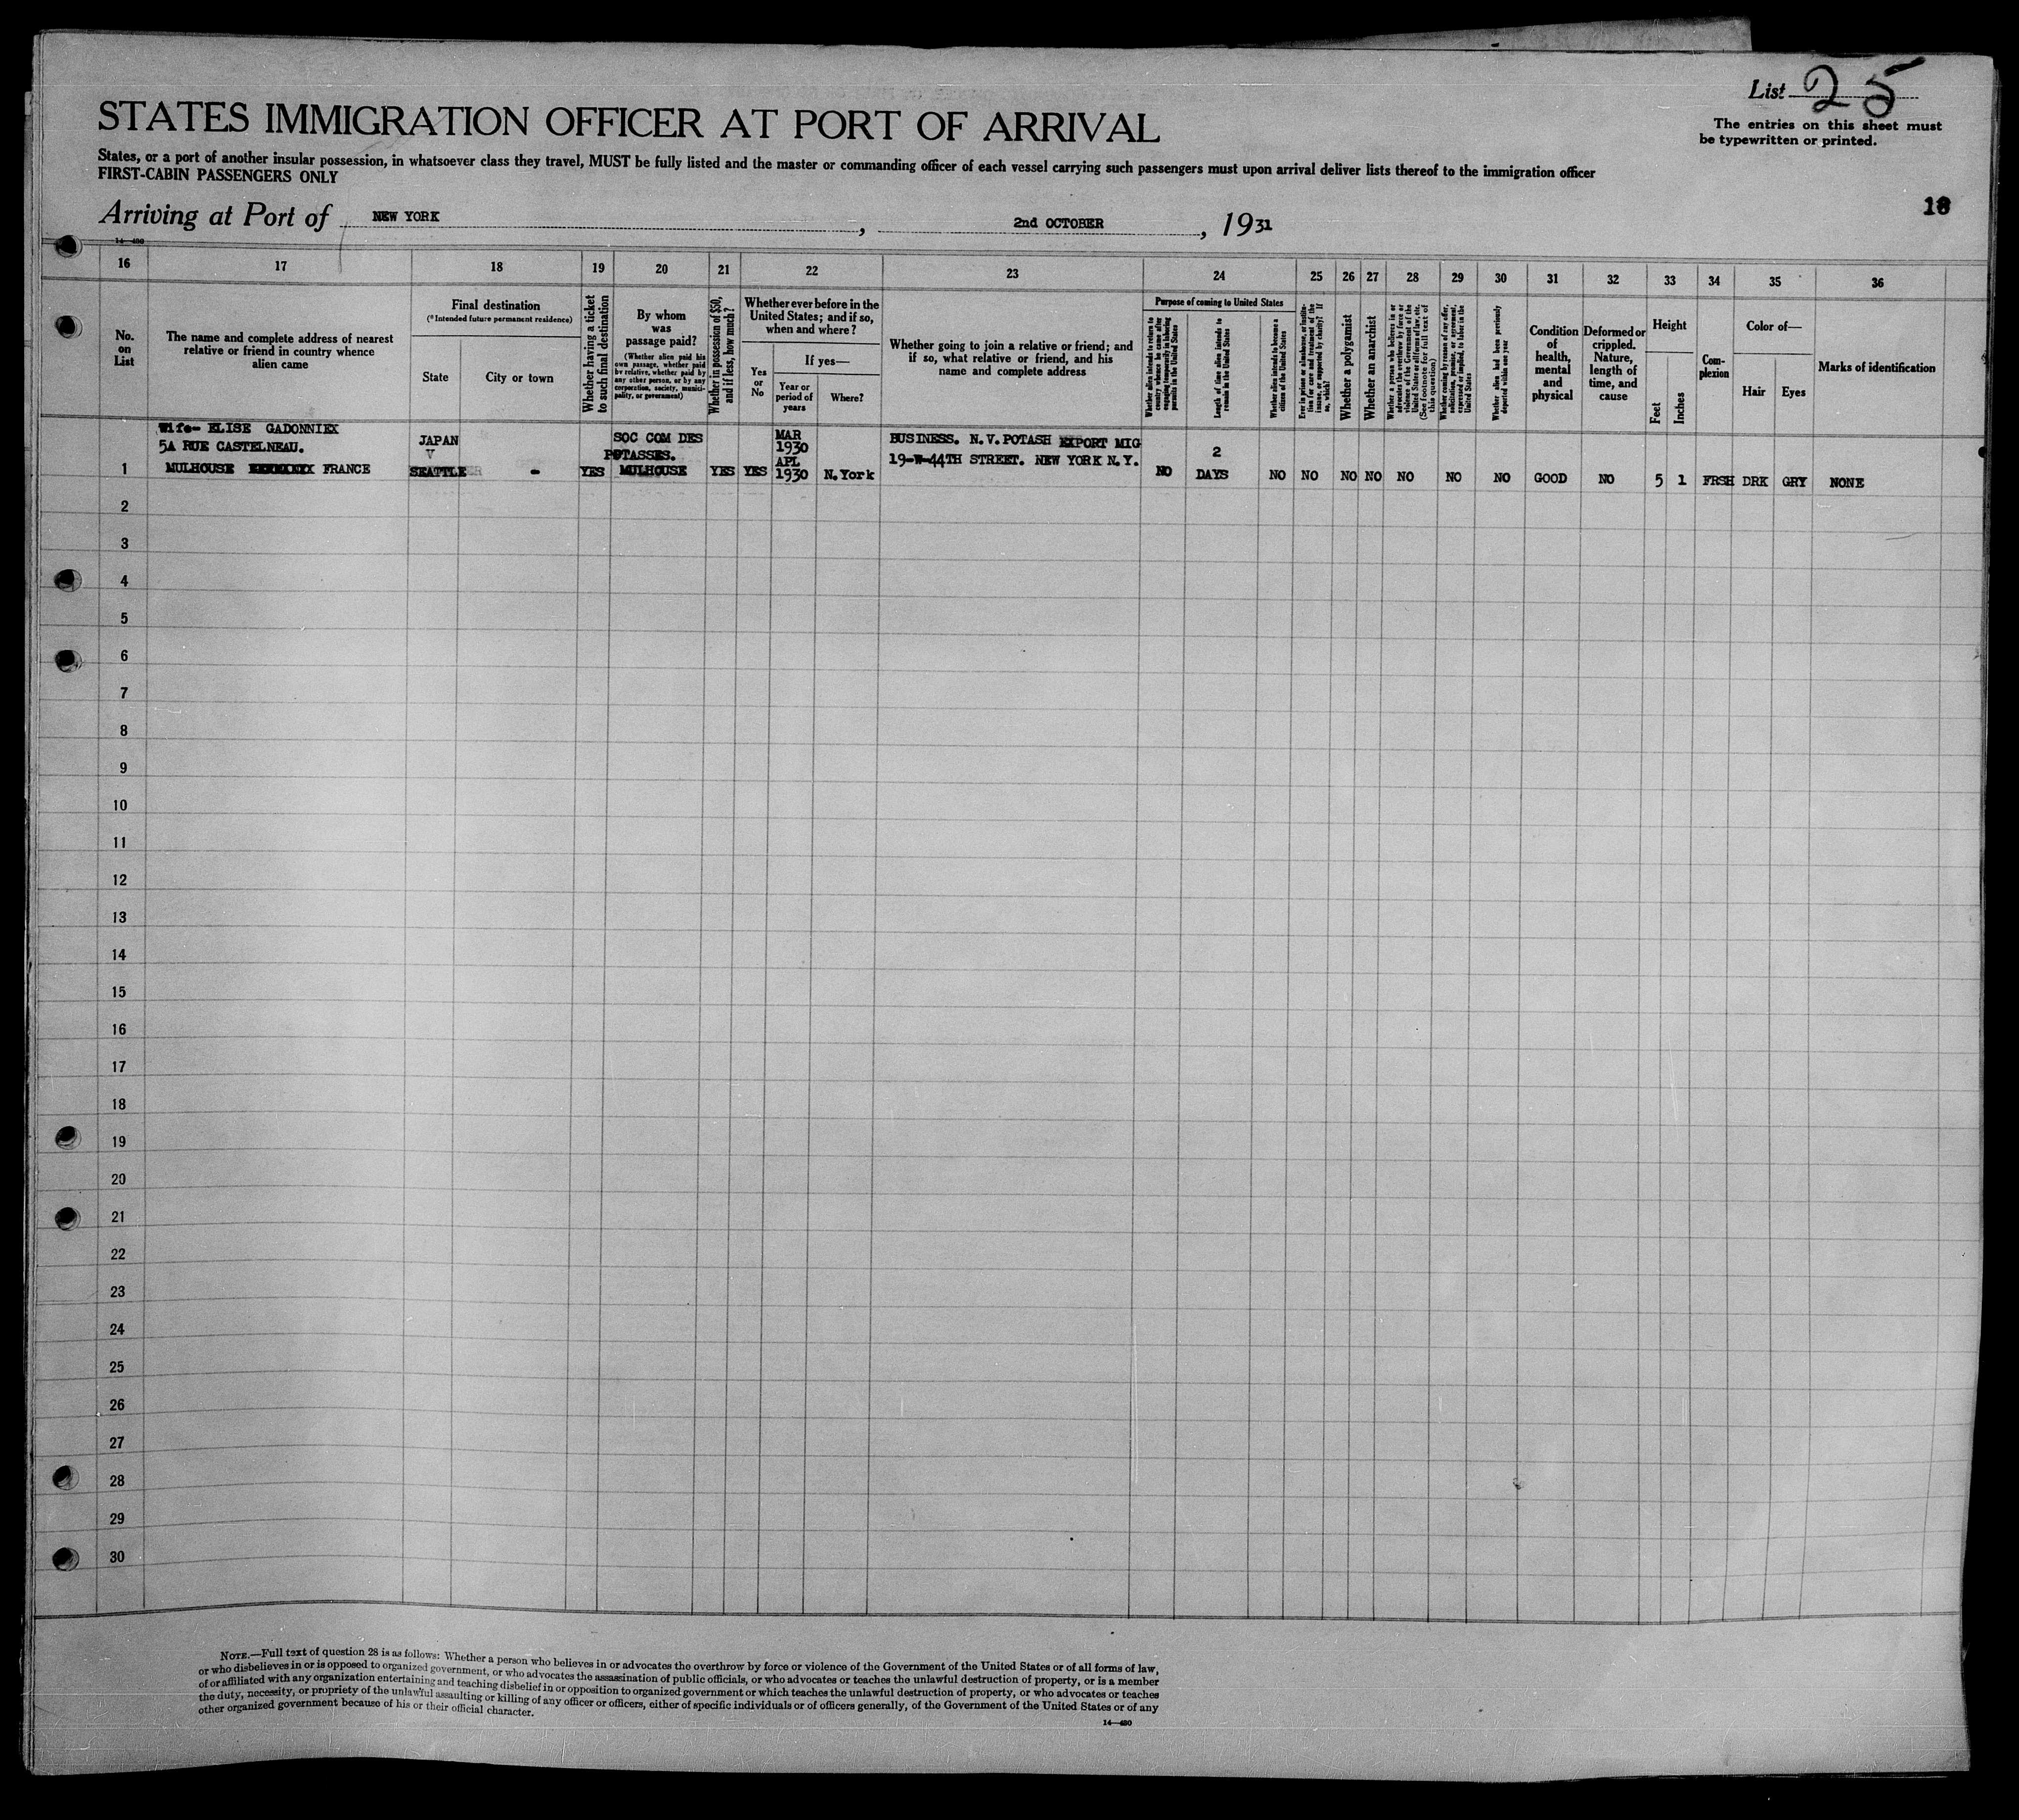 List 25
The entries on this sheet must
be typewritten or printed.
STATES IMMIGRATION OFFICER AT PORT OF ARRIVAL
States, or a port of another insular possession, in whatsoever class they travel, MUST be fully listed and the master or commanding officer of each vessel carrying such passengers must upon arrival deliver lists thereof to the immigration officer
FIRST-CABIN PASSENGERS ONLY
Arriving at Port of NEW YORK, 2nd OCTOBER, 1931
14—480
16 17 18 19 20 21 22 23 24 25 26 27 28 29 30 31 32 33 34 35 36
No.
on
List
The name and complete address of nearest
relative or friend in country whence
alien came
Final destination
(*Intended future permanent residence)
State
City or town
Whether having a ticket
to such final destination
By whom
was
passage paid?
(Whether alien paid his
own passage, whether paid
by relative, whether paid by
any other person, or by any
corporation, society, munici-
pality, or government)
Whether in possession of $50,
and if less, how much?
Whether ever before in the
United States; and if so,
when and where?
Yes
or
No
If yes—
Year or
period of
years
Where?
Whether going to join a relative or friend; and
if so, what relative or friend, and his
name and complete address
Purpose of coming to United States
Whether alien intends to return to
country whence he came after
engaging temporarily in laboring
pursuits in the United States
Length of time alien intends to
remain in the United States
Whether alien intends to become a
citizen of the United States
Ever in prison or almshouse, or institu-
tion for care and treatment of the
insane, or supported by charity? If
so, which?
Whether a polygamist
Whether an anarchist
Whether a person who believes in or
advocates the overthrow by force or
violence of the Government of the
United States or all forms of law, etc.
(See footnote for full text of
this question)
Whether coming by reason of any offer,
solicitation, promise, or agreement,
expressed or implied, to labor in the
United States
Whether alien had been previously
deported within one year
Condition
of
health,
mental
and
physical
Deformed or
crippled.
Nature,
length of
time, and
cause
Height
Feet
Inches
Com-
plexion
Color of—
Hair
Eyes
Marks of identification
Wife- ELISE GADONNIEX
5A RUE CASTELNEAU.
1 MULHOUSE FRANCE
JAPAN
V
SEATTLE
-
YES
SOC COM DES
POTASSES.
MULHOUSE
YES
YES
MAR
1930
APL
1930
N.York
BUSINESS. N.V. POTASH EXPORT MIG
19-W-44TH STREET. NEW YORK N.Y.
NO
2
DAYS
NO NO NO NO NO NO NO GOOD NO 5 1 FRSH DRK GRY NONE
2
3
4
5
6
7
8
9
10
11
12
13
14
15
16
17
18
19
20
21
22
23
24
25
26
27
28
29
30
NOTE.—Full text of question 28 is as follows: Whether a person who believes in or advocates the overthrow by force or violence of the Government of the United States or of all forms of law,
or who disbelieves in or is opposed to organized government, or who advocates the assassination of public officials, or who advocates or teaches the unlawful destruction of property, or is a member
of or affiliated with any organization entertaining and teaching disbelief in or opposition to organized government or which teaches the unlawful destruction of property, or who advocates or teaches
the duty, necessity, or propriety of the unlawful assaulting or killing of any officer or officers, either of specific individuals or of officers generally, of the Government of the United States or of any
other organized government because of his or their official character.
14—480